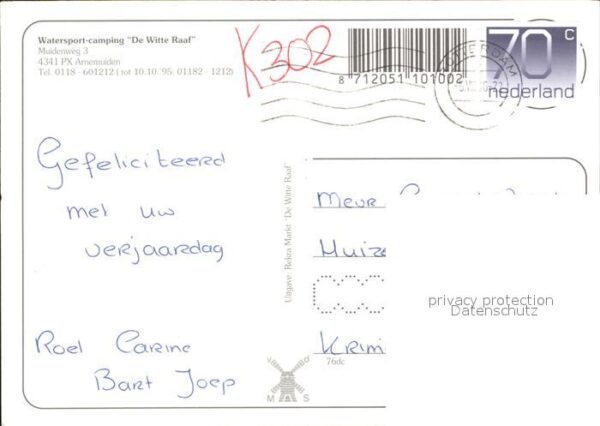 Watersport-camping "De Witte Raaf"
Muidenweg 3
4341 PX Arnemuiden
Tel. 0118 - 601212 ( tot 10.10.'95: 01182 - 1212)
K302
8 712051 101002
70 c
nederland
Gefeliciteerd
met uw
verjaardag
Roel Carine
Bart Joep
Uitgave: Rekza Markt "De Witte Raaf"
Meur
Huize
Krim
76dc
M S
privacy protection
Datenschutz